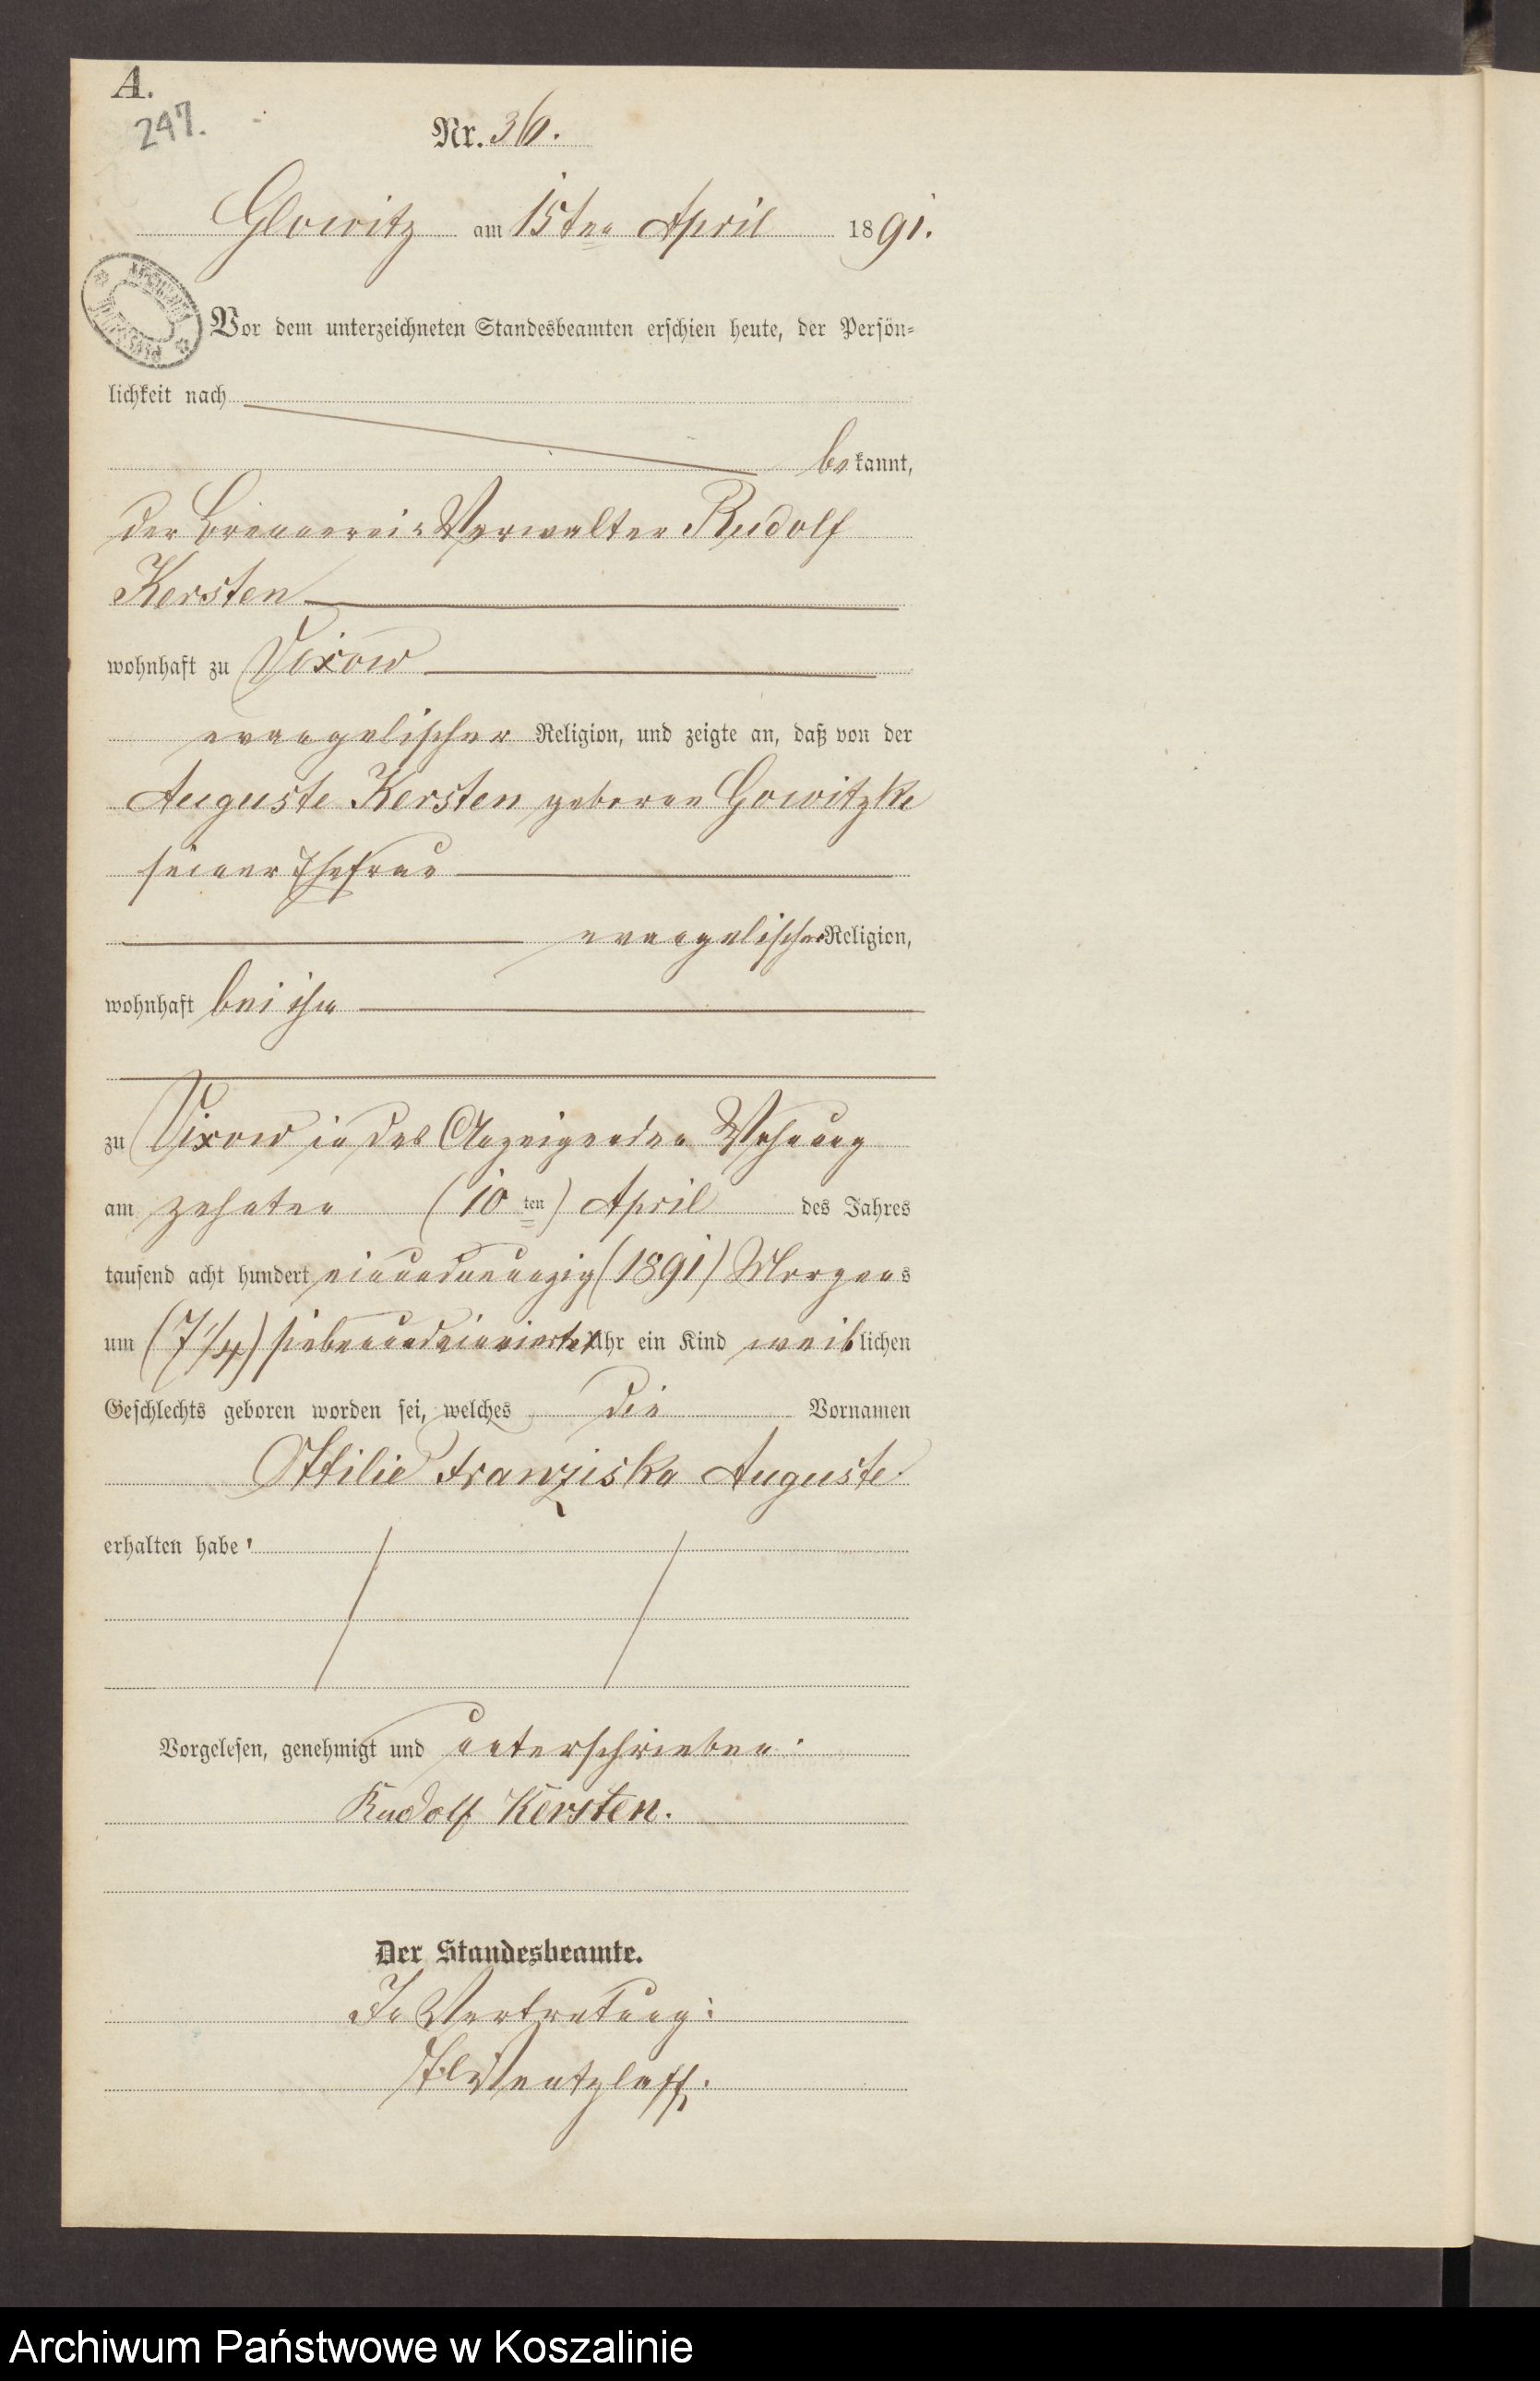 A.
247.
Nr. 36.
Glowitz am 15ten April 1891.
Vor dem unterzeichneten Standesbeamten erschien heute, der Persön-
lichkeit nach
bekannt,
der Brennerei-Verwalter Rudolf
Kersten
wohnhaft zu Vixow
evangelischer Religion, und zeigte an, daß von der
Auguste Kersten geboren Gowitzke
seiner Ehefrau
evangelischer Religion,
wohnhaft bei ihm
zu Vixow in des Anzeigenden Wohnung
am zehnten (10 ten) April des Jahres
tausend acht hundert einundneunzig (1891) Morgens
um (7 1/4) siebenundeinviertel Uhr ein Kind weiblichen
Geschlechts geboren worden sei, welches die Vornamen
Ottilie Franziska Auguste
erhalten habe
Vorgelesen, genehmigt und unterschrieben:
Rudolf Kersten.
Der Standesbeamte.
In Vertretung:
Wentzlaff.
Archiwum Państwowe w Koszalinie